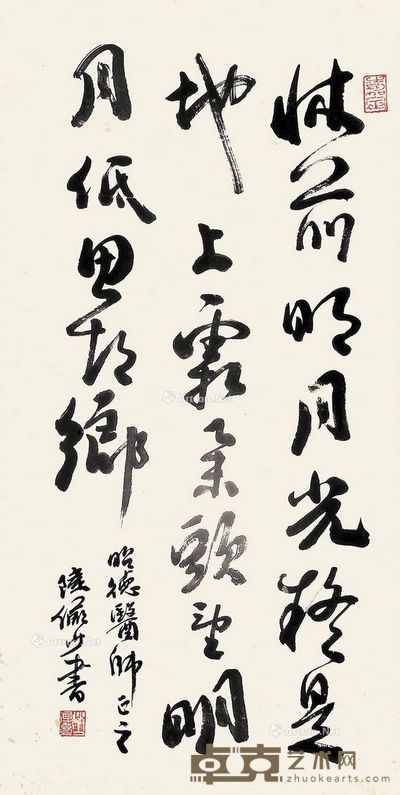 牀前明月光疑是
地上霜舉頭望明
月低思故鄉
昭德醫師正之
陸儼少書
卓克艺术网
zhuokearts.com
Artron.Net